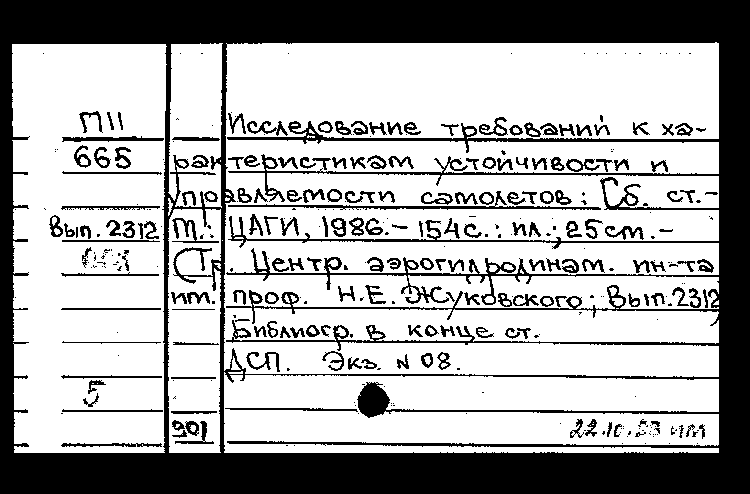 П11 Исследование требований к ха-
665 рактеристикам устойчивости и
управляемости самолетов: [Сб. ст.-
Вып. 2312 М.: ЦАГИ, 1986.- 154с.: ил.; 25см.-
(Тр. Центр. аэрогидродинам. ин-та
им. проф. Н.Е. Жуковского; Вып.2312)
Библиогр. в конце ст.
ДСП. Экз. N 08.
5
901 22.10.